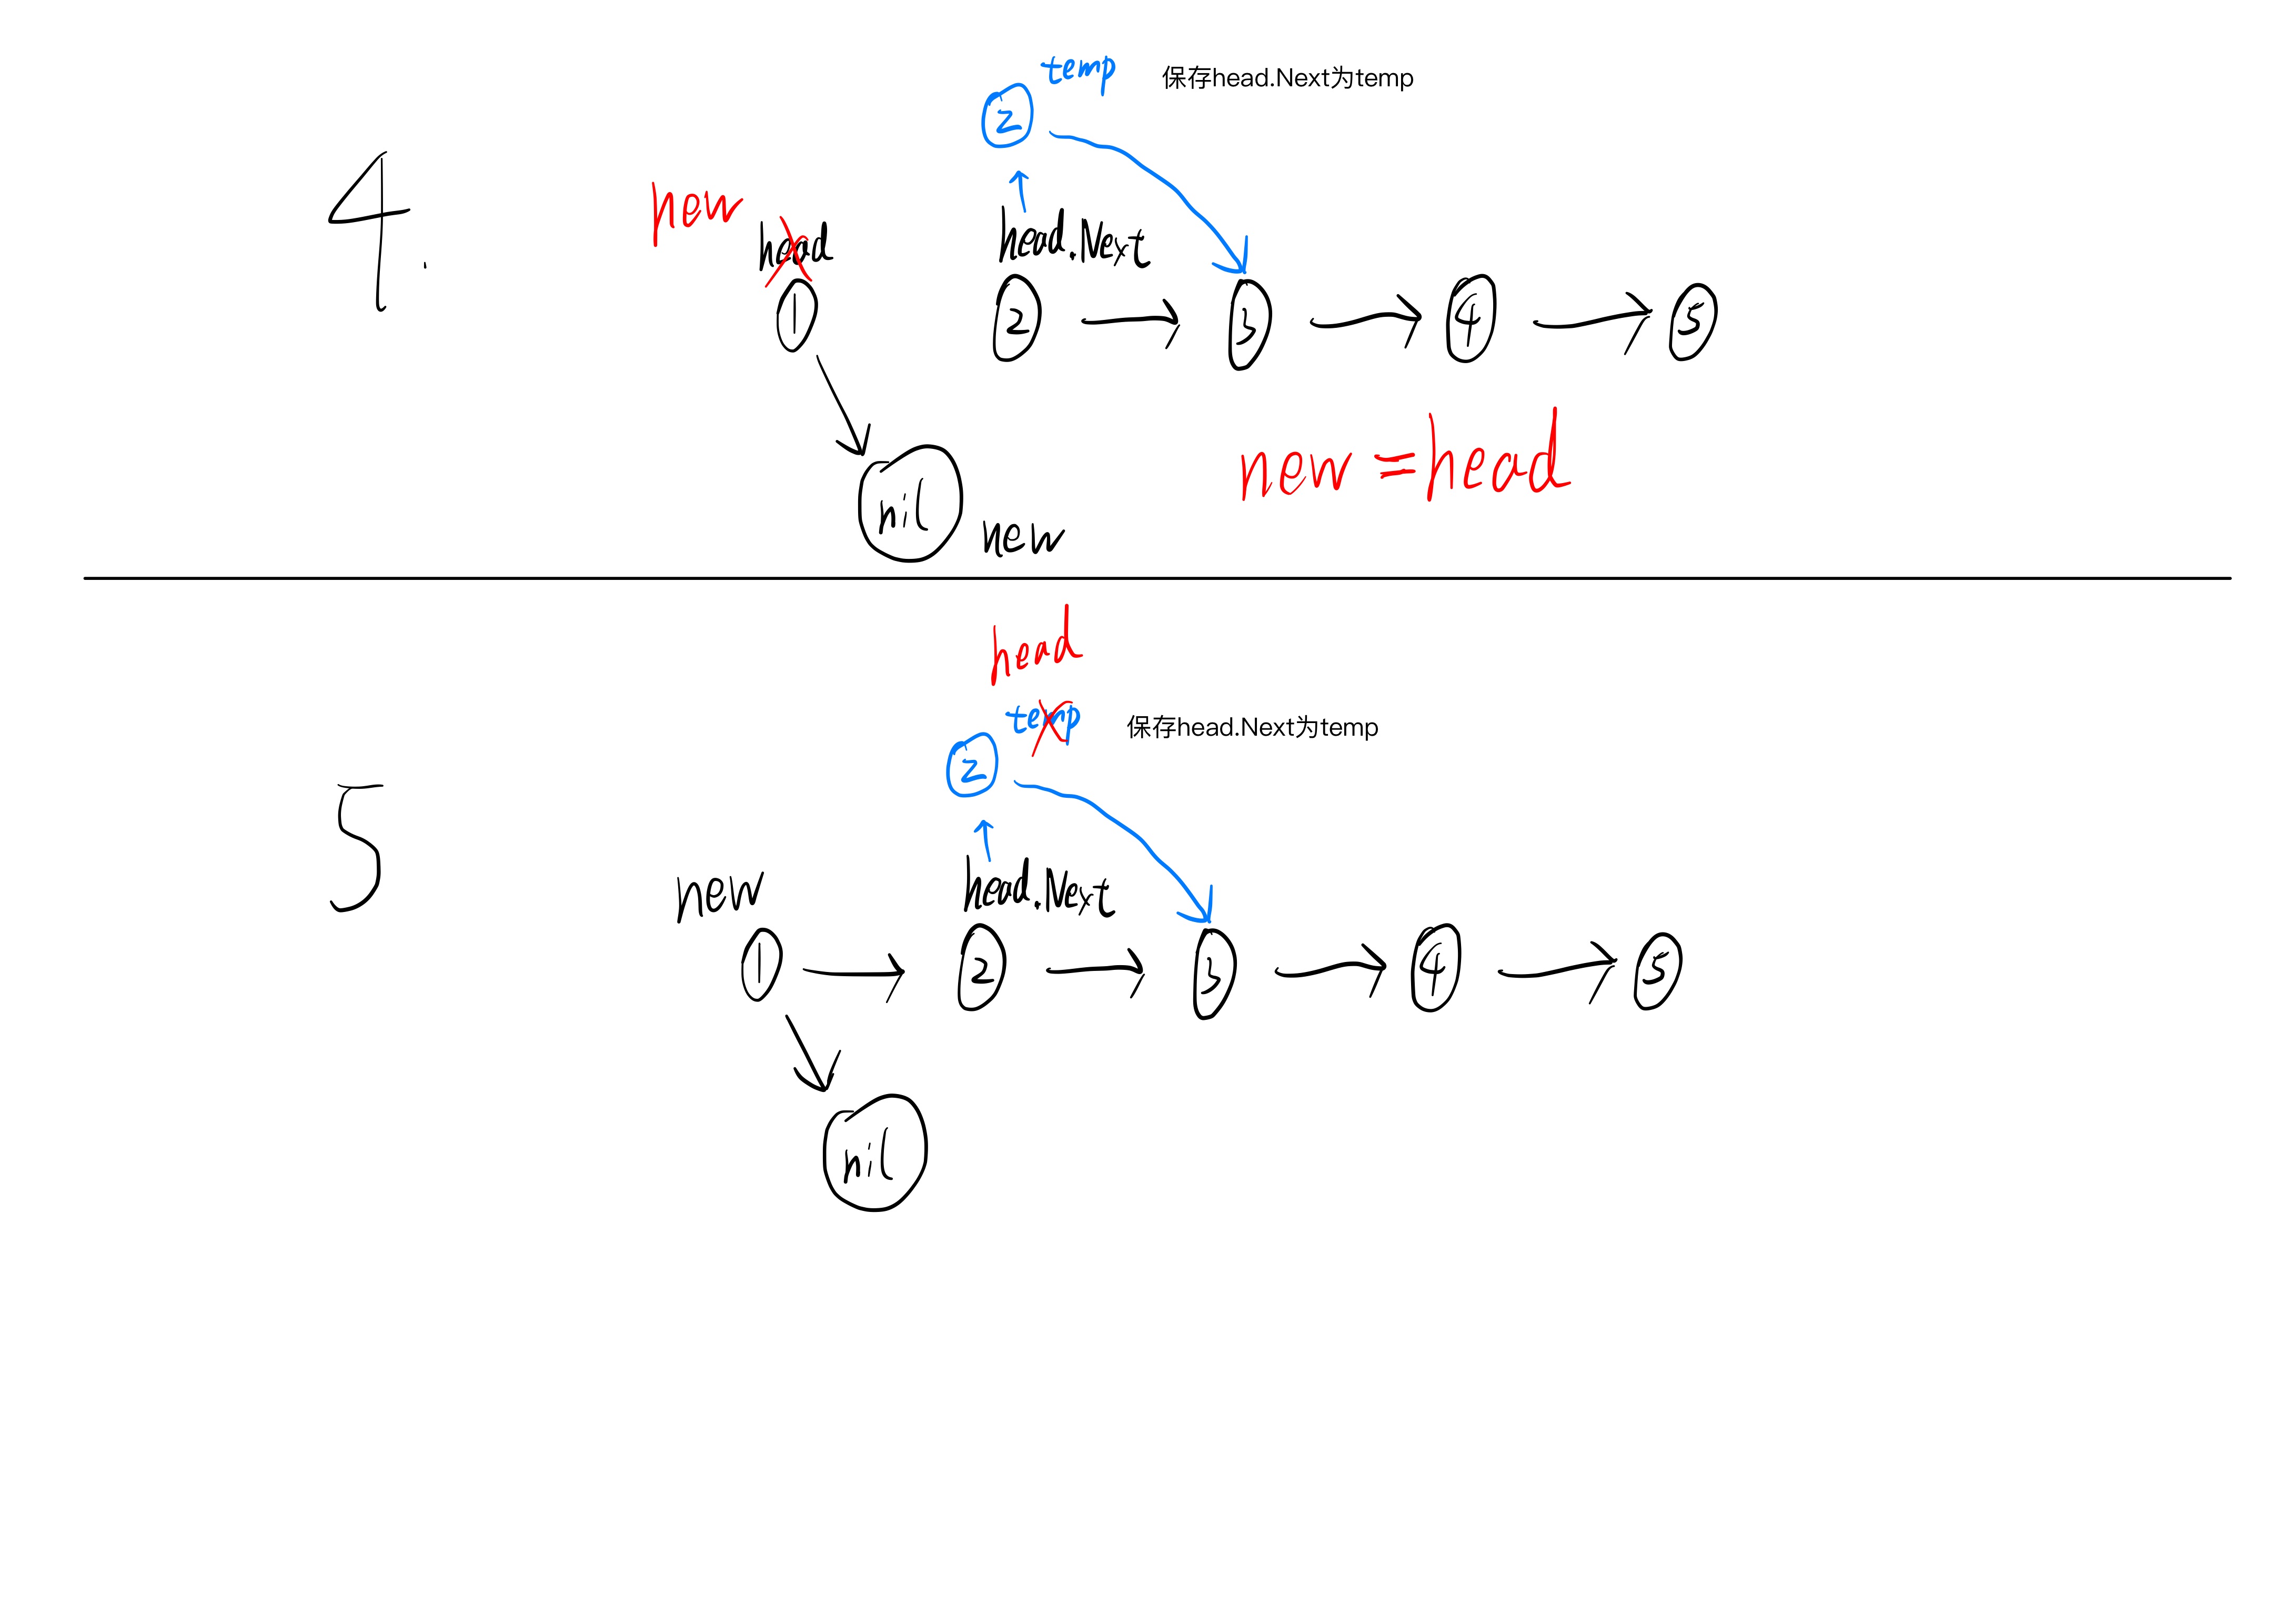 temp 保存head.Next为temp
2
4.
new
head
head.Next
1 2 3 4 5
new = head
nil new
head
temp 保存head.Next为temp
2
5
new head.Next
1 2 3 4 5
nil